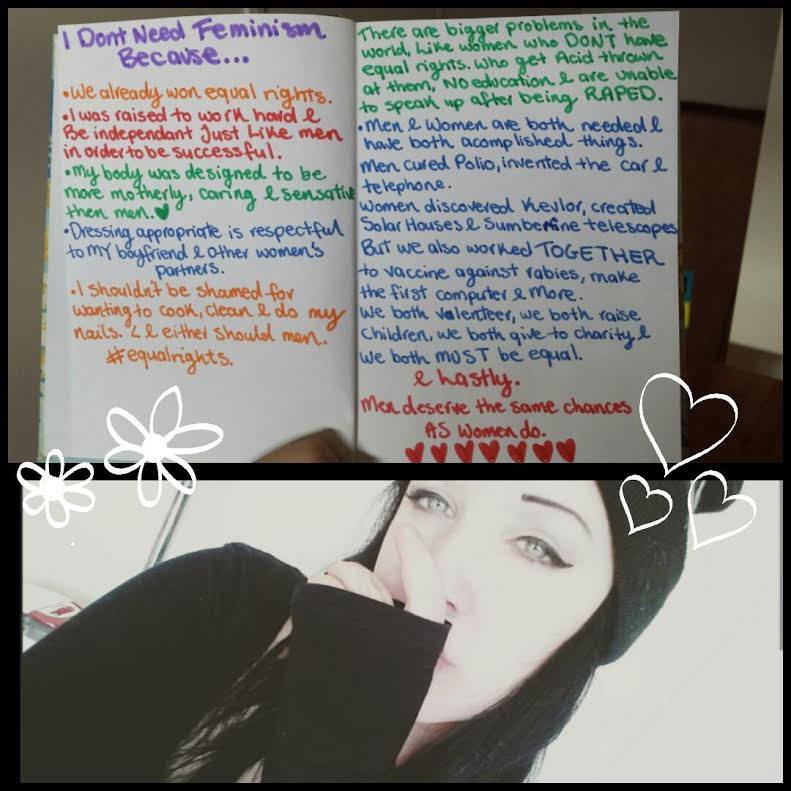 I Dont Need Feminism
Because...
• We already won equal rights.
• I was raised to work hard &
Be independant Just Like men
in order to be successful.
• My body was designed to be
more motherly, caring & sensative
then men.
• Dressing appropriate is respectful
to MY boyfriend & other women's
partners.
• I shouldn't be shamed for
wanting to cook, clean & do my
nails. & either should men.
#equalrights.
There are bigger problems in the
world, Like women who DONT have
equal rights. Who get Acid thrown
at them, NO education & are unable
to speak up after being RAPED.
• Men & Women are both needed &
have both acomplished things.
Men cured Polio, invented the car &
telephone.
Women discovered Kevlor, created
Solar Houses & Sumbarine telescopes
But we also worked TOGETHER
to vaccine against rabies, make
the first computer & more.
We both volenteer, we both raise
Children, we both give to charity &
we both MUST be equal.
& Lastly.
Men deserve the same chances
AS Women do.